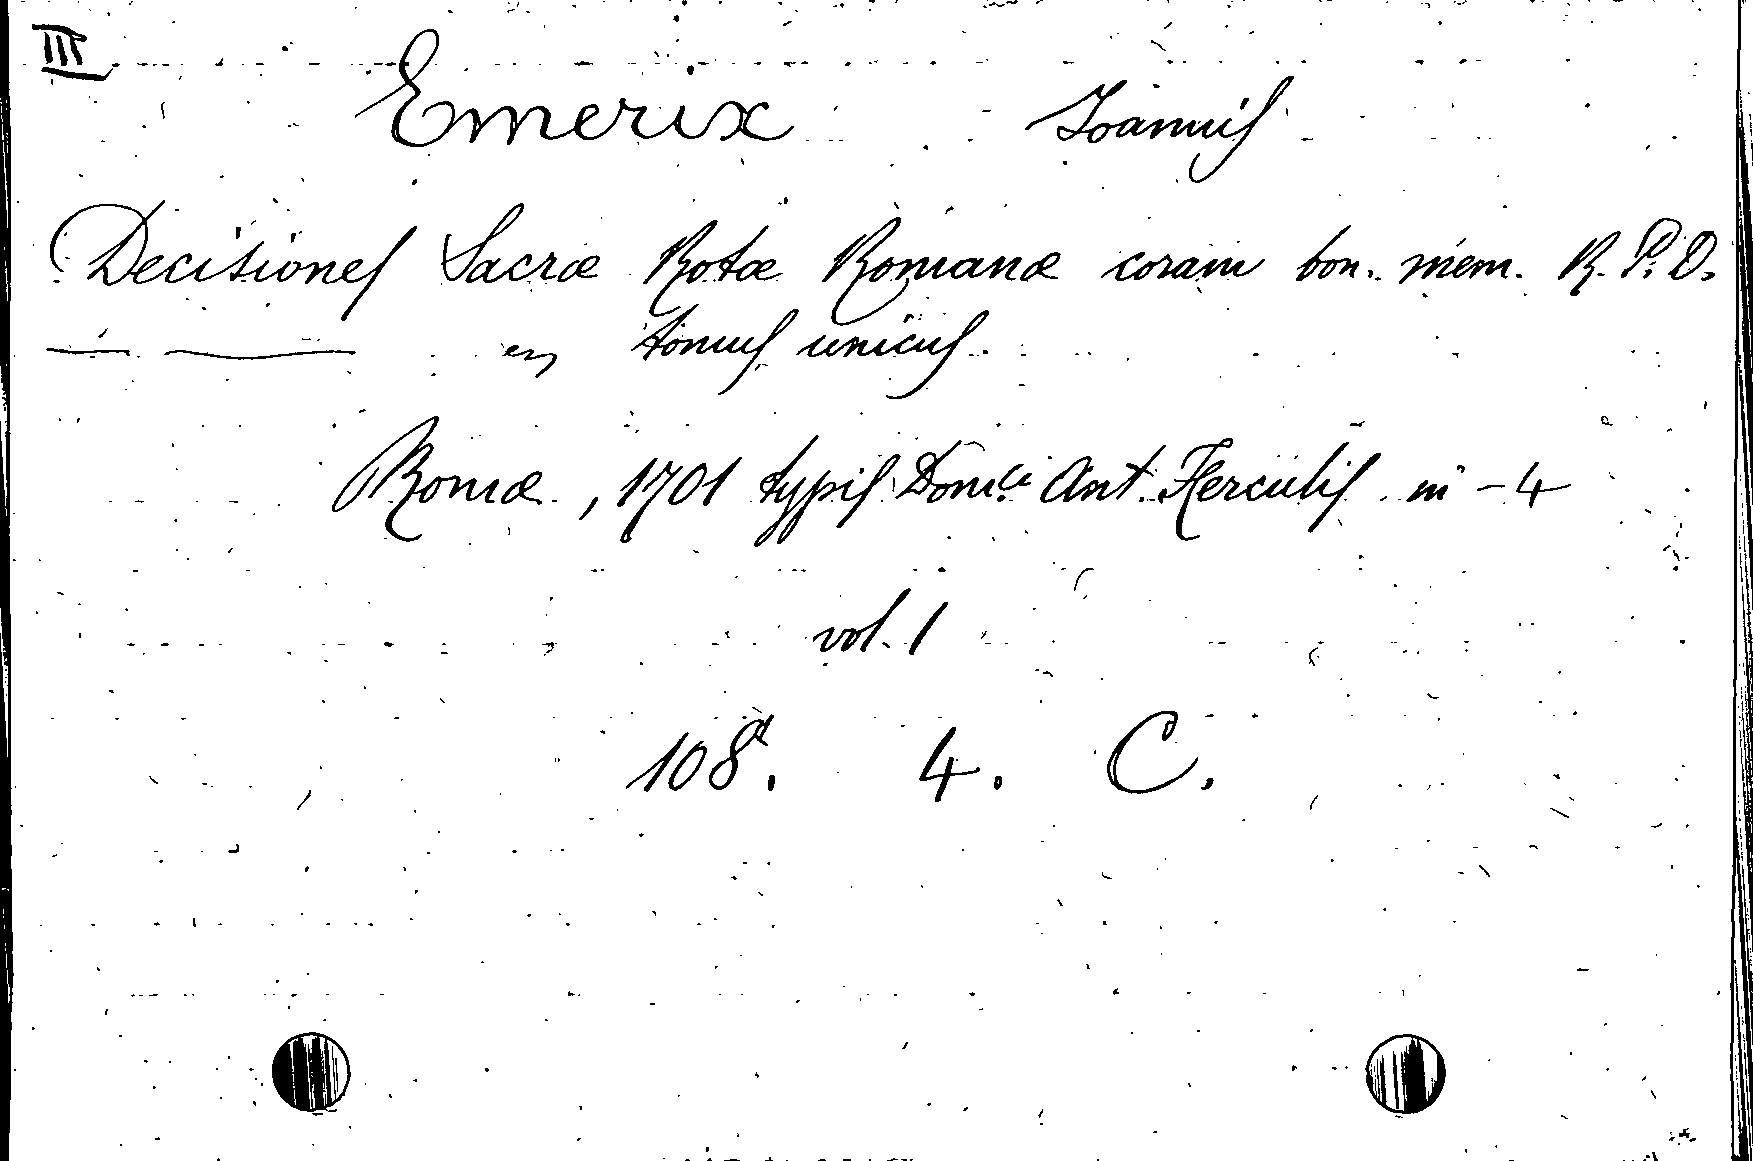 III
Emerix Ioannis
Decisiones Sacræ Rotæ Romanæ coram bon. mem. R. P. D.
— — en tomus unicus.
Romæ, 1701 typis Dom.ci Ant. Herculis in-4
vol. 1
108. 4. C.